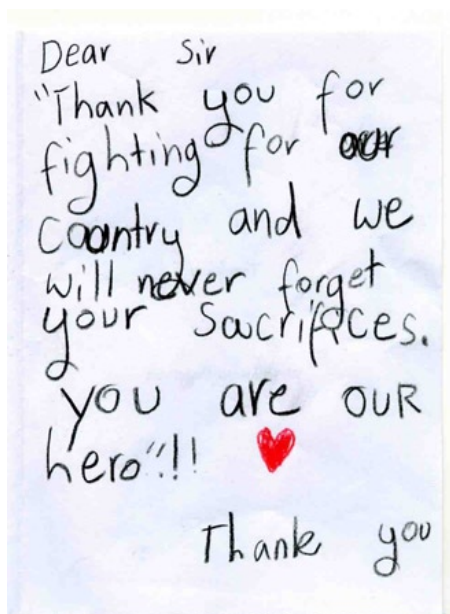 Dear Sir
"Thank you for
fighting for our
Country and we
will never forget
your Sacrifices.
you are OUR
hero"!!
Thank you